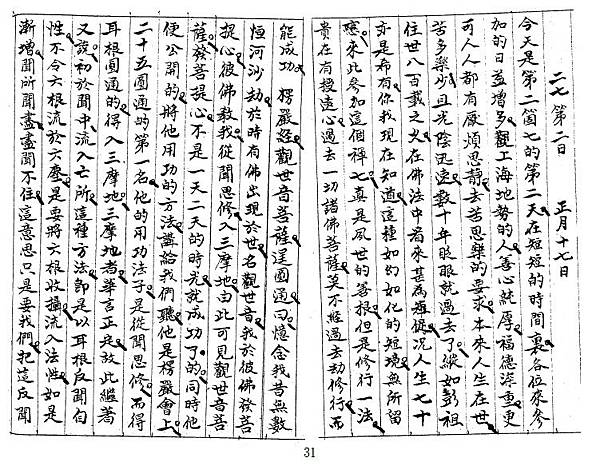 二七第二日　正月十七日
今天是第二箇七的第二天在短短的時間裏各位來參
加的日益增多觀上海地勢的人善心純厚福德深重更
可人人都有厭煩思靜去苦思樂的要求本來人生在世
苦多樂少且光陰迅速數十年眨眼就過去了縱如彭祖
住世八百載之久在佛法中看來甚為短促況人生七十
亦是希有你我現在知道這種如幻如化的短境無所留
戀來此參加這個禪七真是夙世的善根但是修行一法
貴在有遠心過去一切諸佛菩薩莫不經過去劫修行而
能成功楞嚴經觀世音菩薩圓通曰憶念我昔無數
恒河沙劫於時有佛出現於世名觀世音我於彼佛發菩
提心彼佛教我從聞思修入三摩地由此可見觀世音菩
薩發菩提心不是一天二天的時光就成功了的同時他
便公開的將他用功的方法講給我們聽他是楞嚴會上
二十五圓通的第一名他的用功法子是從聞思修而得
耳根圓通的得入三摩地者華言正是故此繼著
又說初於聞中流入亡所這種方法卽是以耳根反聞自
性不令六根流於六塵是要將六根收攝流入法性如是
漸增聞所聞盡盡聞不住這意思只是要我們把這反聞
31